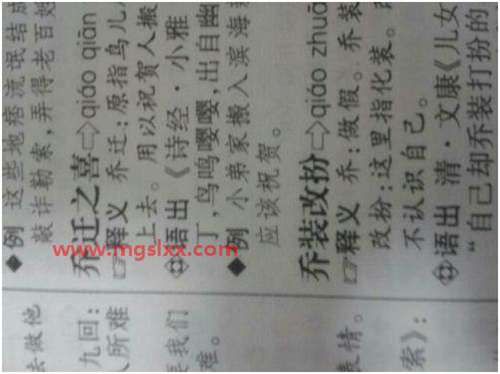 去做他
九回:
人所难
要我们
难。
表情。
索》:
◆例 这些地痞流氓结成
敲诈勒索,弄得老百姓
乔迁之喜⇨qiáo qiān
☞释义 乔迁:原指鸟儿
上去。用以祝贺人搬
语出 《诗经·小雅
丁,鸟鸣嘤嘤,出自幽
◆例 小弟家搬入滨海
应该祝贺。
乔装改扮⇨qiáo zhuā
☞释义 乔:做假。乔装
改扮:这里指化装。
不认识自己。
语出 清·文康《儿女
“自己却乔装打扮的
www.mgslxx.com